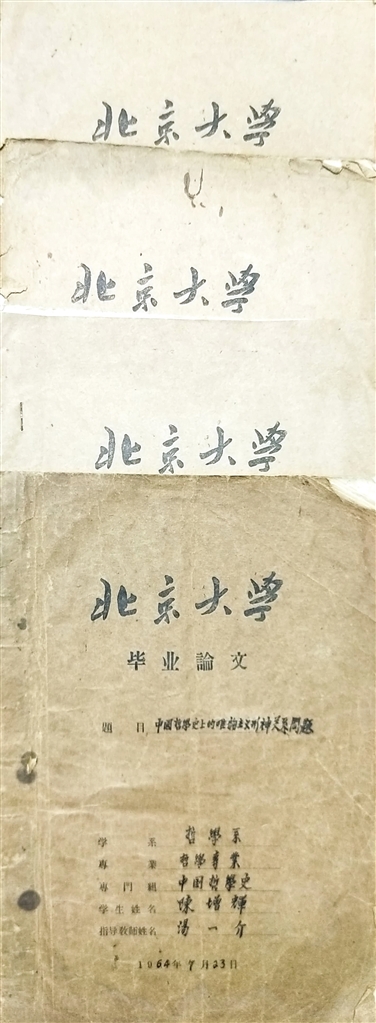 北京大学
北京大学
北京大学
北京大学
毕业論文
題目 中國哲學史上的唯物主义形神关系問題
学系 哲學系
專業 哲學專業
專門組 中國哲學史
学生姓名 陳增輝
指导教師姓名 湯一介
1964年7月23日